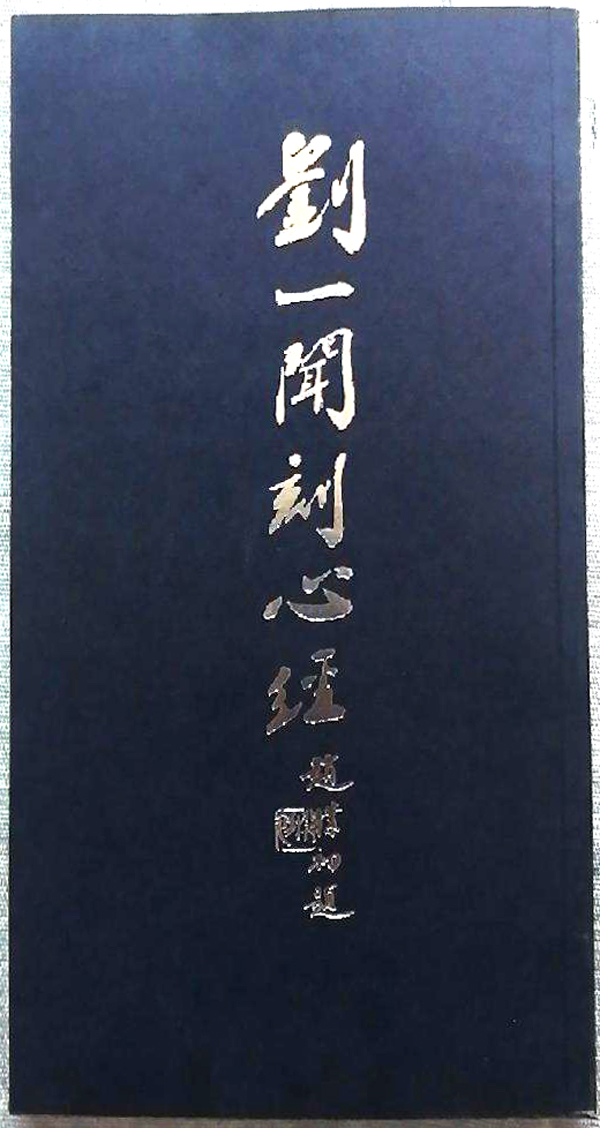 劉一聞刻心經
趙樸初題